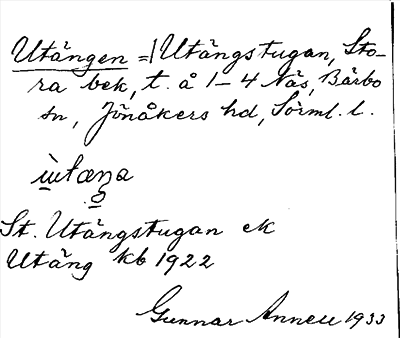 Utängen =| Utängstugan, Sto-
ra bek, t. å 1–4 Näs, Bärbo
sn, Jönåkers hd, Sörml. l.
St. Utängstugan ek
Utäng kb 1922
Gunnar 1933